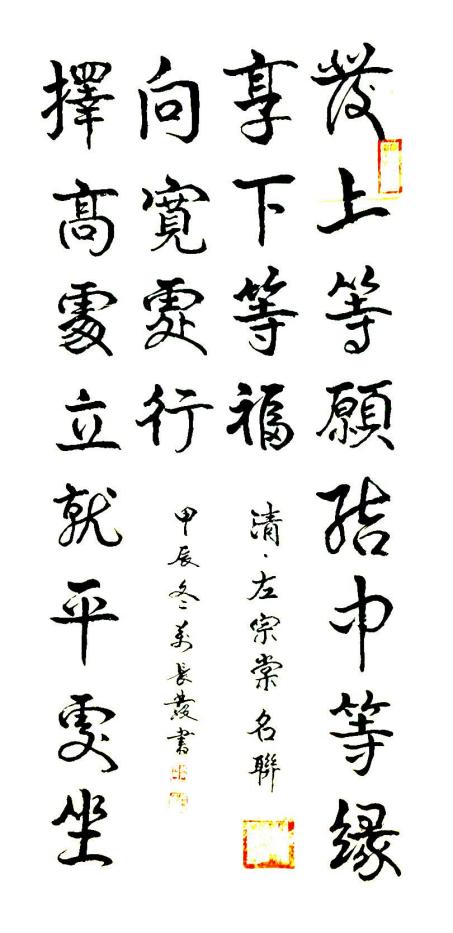 發上等願結中等緣
享下等福
清·左宗棠名聯
擇高處立就平處坐
向寬處行
甲辰冬萬長發書